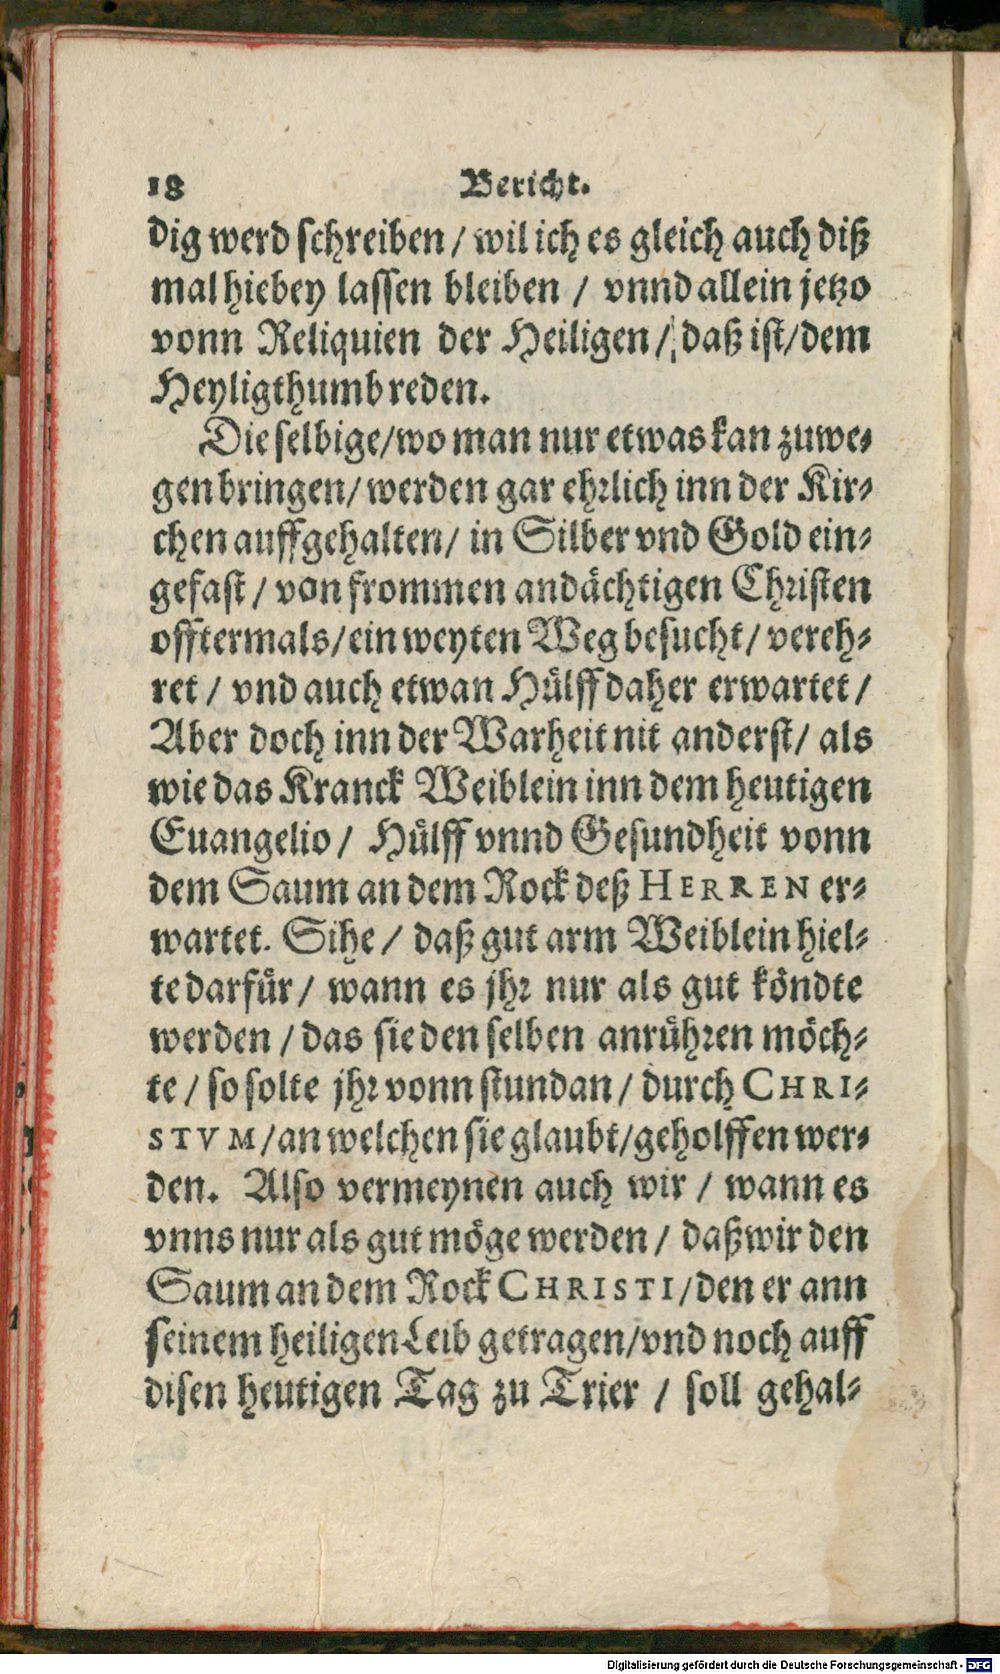 18 Bericht.
dig werd schreiben / wil ich es gleich auch diß
mal hiebey lassen bleiben / vnnd allein jetzo
vonn Reliquien der Heiligen / daß ist / dem
Heyligthumb reden.
Die selbige / wo man nur etwas kan zuwe-
gen bringen / werden gar ehrlich inn der Kir-
chen auffgehalten / in Silber vnd Gold ein-
gefast / von frommen andächtigen Christen
offtermals / ein weyten Weg besucht / vereh-
ret / vnd auch etwan Hülff daher erwartet /
Aber doch inn der Warheit nit anderst / als
wie das Kranck Weiblein inn dem heutigen
Euangelio / Hülff vnnd Gesundheit vonn
dem Saum an dem Rock deß HERREN er-
wartet. Sihe / daß gut arm Weiblein hiel-
te darfür / wann es jhr nur als gut köndte
werden / das sie den selben anrühren möch-
te / so solte jhr vonn stundan / durch CHRI-
STVM / an welchen sie glaubt / geholffen wer-
den. Also vermeynen auch wir / wann es
vnns nur als gut möge werden / daß wir den
Saum an dem Rock CHRISTI / den er ann
seinem heiligen Leib getragen / vnd noch auff
disen heutigen Tag zu Trier / soll gehal-
Digitalisierung gefördert durch die Deutsche Forschungsgemeinschaft - DFG